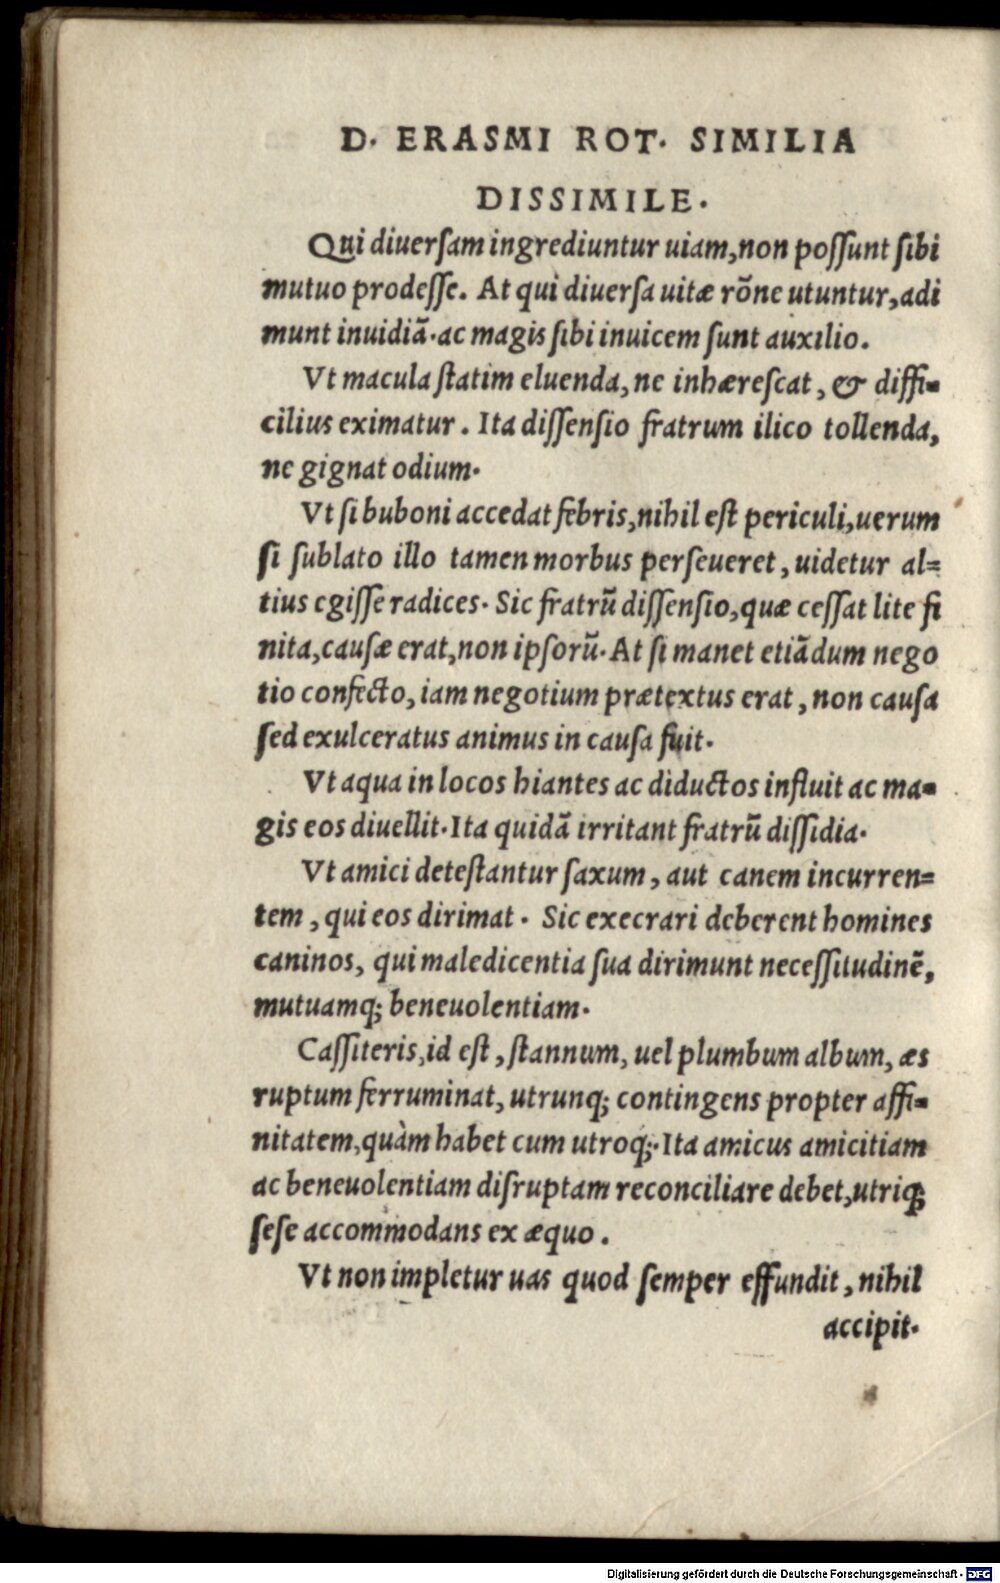 D. ERASMI ROT. SIMILIA
DISSIMILE.
Qui diuerſam ingrediuntur uiam, non poſſunt ſibi
mutuo prodeſſe. At qui diuerſa uitæ rõne utuntur, adi
munt inuidiã. ac magis ſibi inuicem ſunt auxilio.
Vt macula ſtatim eluenda, ne inhæreſcat, & diffi-
cilius eximatur. Ita diſſenſio fratrum ilico tollenda,
ne gignat odium.
Vt ſi buboni accedat febris, nihil eſt periculi, uerum
ſi ſublato illo tamen morbus perſeueret, uidetur al-
tius egiſſe radices. Sic fratrũ diſſenſio, quæ ceſſat lite fi
nita, cauſæ erat, non ipſorũ. At ſi manet etiãdum nego
tio confecto, iam negotium prætextus erat, non cauſa
ſed exulceratus animus in cauſa fuit.
Vt aqua in locos hiantes ac diductos influit ac ma-
gis eos diuellit. Ita quidã irritant fratrũ diſſidia.
Vt amici deteſtantur ſaxum, aut canem incurren-
tem, qui eos dirimat. Sic execrari deberent homines
caninos, qui maledicentia ſua dirimunt neceſſitudinẽ,
mutuamq; beneuolentiam.
Caſſiteris, id eſt, ſtannum, uel plumbum album, æs
ruptum ferruminat, utrunq; contingens propter affi-
nitatem, quàm habet cum utroq;. Ita amicus amicitiam
ac beneuolentiam diſruptam reconciliare debet, utriq;
ſeſe accommodans ex æquo.
Vt non impletur uas quod ſemper effundit, nihil
accipit.
Digitalisierung gefördert durch die Deutsche Forschungsgemeinschaft - DFG